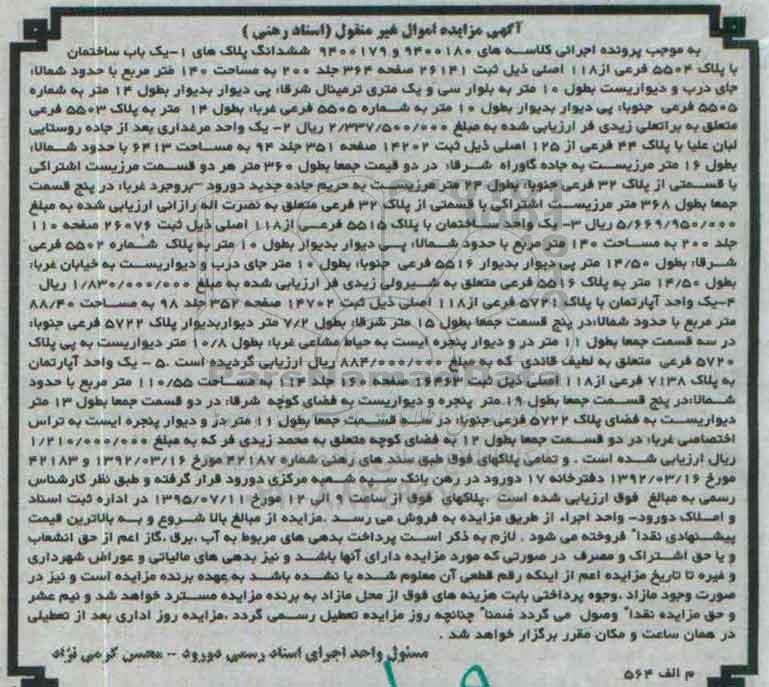 آگهی مزایده اموال غیر منقول (اسناد رهنی )
به موجب پرونده اجرائی کلاسه های ۹۴۰۰۱۸۰ و ۹۴۰۰۱۷۹ ششدانگ پلاک های ۱-یک باب ساختمان
با پلاک ۵۵۰۴ فرعی از۱۱۸ اصلی ذیل ثبت ۲۶۱۴۱ صفحه ۳۶۴ جلد ۲۰۰ به مساحت ۱۴۰ متر مربع با حدود شمالا:
جای درب و دیواریست بطول ۱۰ متر به بلوار سی و یک متری ترمینال شرقا: پی دیوار بدیوار بطول ۱۴ متر به شماره
۵۵۰۵ فرعی جنوبا: پی دیوار بدیوار بطول ۱۰ متر به شماره ۵۵۰۵ فرعی غربا: بطول ۱۴ متر به پلاک ۵۵۰۳ فرعی
متعلق به براتعلی زیدی فر ارزیابی شده به مبلغ ۲/۳۳۷/۵۰۰/۰۰۰ ریال ۲- یک واحد مرغداری بعد از جاده روستایی
لبان علیا با پلاک ۴۴ فرعی از ۱۲۵ اصلی ذیل ثبت ۱۴۲۰۲ صفحه ۳۵۱ جلد ۹۴ به مساحت ۶۴۱۳ با حدود شمالا:
بطول ۱۶ متر مرزیست به جاده گاوراه شرقا: در دو قیمت جمعا بطول ۳۶۰ متر هر دو قسمت مرزیست اشتراکی
با قسمتی از پلاک ۳۲ فرعی جنوبا: بطول ۲۴ متر مرزیست به حریم جاده جدید دورود -بروجرد غربا: در پنج قسمت
جمعا بطول ۳۶۸ متر مرزیست اشتراکی با قسمتی از پلاک ۳۲ فرعی متعلق به نصرت اله رازانی ارزیابی شده به مبلغ
۵/۶۶۹/۹۵۰/۰۰۰ ریال ۳- یک واحد ساختمان با پلاک ۵۵۱۵ فرعی از۱۱۸ اصلی ذیل ثبت ۲۶۰۷۶ صفحه ۱۱۰
جلد ۲۰۰ به مساحت ۱۴۰ متر مربع با حدود شمالا: پی دیوار بدیوار بطول ۱۰ متر به پلاک شماره ۵۵۰۲ فرعی
شرقا: بطول ۱۴/۵۰ متر پی دیوار بدیوار ۵۵۱۶ فرعی جنوبا: بطول ۱۰ متر جای درب و دیواریست به خیابان غربا:
بطول ۱۴/۵۰ متر به پلاک ۵۵۱۶ فرعی متعلق به شیرولی زیدی فر ارزیابی شده به مبلغ ۱/۸۳۰/۰۰۰/۰۰۰ ریال
۴-یک واحد آپارتمان با پلاک ۵۷۲۱ فرعی از۱۱۸ اصلی ذیل ثبت ۱۴۷۰۲ صفحه ۳۵۲ جلد ۹۸ به مساحت ۸۸/۴۰
متر مربع با حدود شمالا:در پنج قسمت جمعا بطول ۱۵ متر شرقا: بطول ۷/۲ متر دیواربدیوار پلاک ۵۷۲۲ فرعی جنوبا:
در سه قسمت جمعا بطول ۱۱ متر در و دیوار پنجره ایست به حیاط مشاعی غربا: بطول ۱۰/۸ متر دیواریست به پی پلاک
۵۷۲۰ فرعی متعلق به لطیف قائدی که به مبلغ ۸۸۴/۰۰۰/۰۰۰ ریال ارزیابی گردیده است .۵ - یک واحد آپارتمان
به پلاک ۷۱۳۸ فرعی از۱۱۸ اصلی ذیل ثبت ۱۶۴۶۳ صفحه ۱۶۰ جلد ۱۱۴ به مساحت ۱۱۰/۵۵ متر مربع با حدود
شمالا:در پنج قسمت جمعا بطول ۱۹ متر پنجره و دیواریست به فضای کوچه شرقا: در دو قسمت جمعا بطول ۱۳ متر
دیواریست به فضای پلاک ۵۷۲۲ فرعی جنوبا: در سه قسمت جمعا بطول ۱۱ متر در و دیوار پنجره ایست به تراس
اختصاصی غربا: در دو قسمت جمعا بطول ۱۲ به فضای کوچه متعلق به محمد زیدی فر که به مبلغ ۱/۲۱۰/۰۰۰/۰۰۰
ریال ارزیابی شده است . و تمامی پلاکهای فوق طبق سند های رهنی شماره ۴۲۱۸۷ مورخ ۱۳۹۲/۰۳/۱۶ و ۴۲۱۸۳
مورخ ۱۳۹۲/۰۳/۱۶ دفترخانه ۱۷ دورود در رهن بانک سپه شعبه مرکزی دورود قرار گرفته و طبق نظر کارشناس
رسمی به مبالغ فوق ارزیابی شده است .پلاکهای فوق از ساعت ۹ الی ۱۲ مورخ ۱۳۹۵/۰۷/۱۱ در اداره ثبت اسناد
و املاک دورود- واحد اجراء از طریق مزایده به فروش می رسد .مزایده از مبالغ بالا شروع و به بالاترین قیمت
پیشنهادی نقداً فروخته می شود . لازم به ذکر است پرداخت بدهی های مربوط به آب ،برق ،گاز اعم از حق انشعاب
و یا حق اشتراک و مصرف در صورتی که مورد مزایده دارای آنها باشد و نیز بدهی های مالیاتی و عوراض شهرداری
و غیره تا تاریخ مزایده اعم از اینکه رقم قطعی آن معلوم شده یا نشده باشد به عهده برنده مزایده است و نیز در
صورت وجود مازاد ،وجوه پرداختی بابت هزینه های فوق از محل مازاد به برنده مزایده مسترد خواهد شد و نیم عشر
و حق مزایده نقداً وصول می گردد ضمناً چنانچه روز مزایده تعطیل رسمی گردد ،مزایده روز اداری بعد از تعطیلی
در همان ساعت و مکان مقرر برگزار خواهد شد .
مسئول واحد اجرای اسناد رسمی دورود -- محسن کرمی نژاد
م الف ۵۶۴